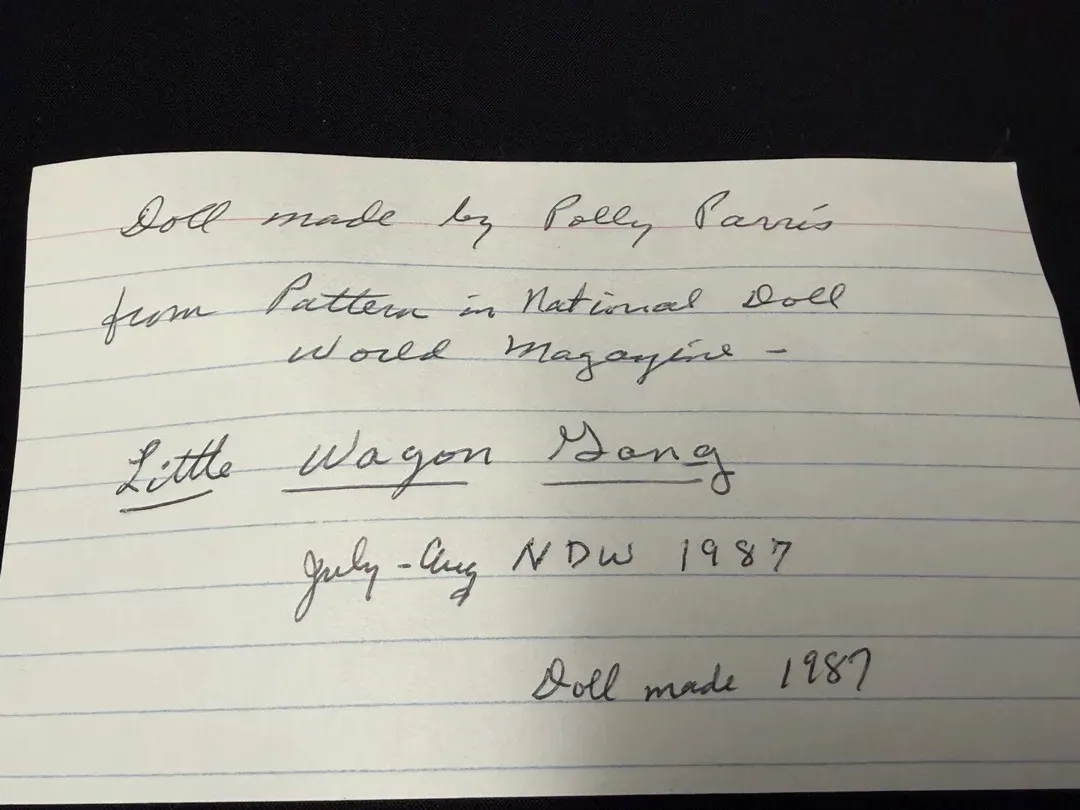 Doll made by Polly Parris
from Pattern in National Doll
World Magazine -
Little Wagon Gang
July - Aug NDW 1987
Doll made 1987